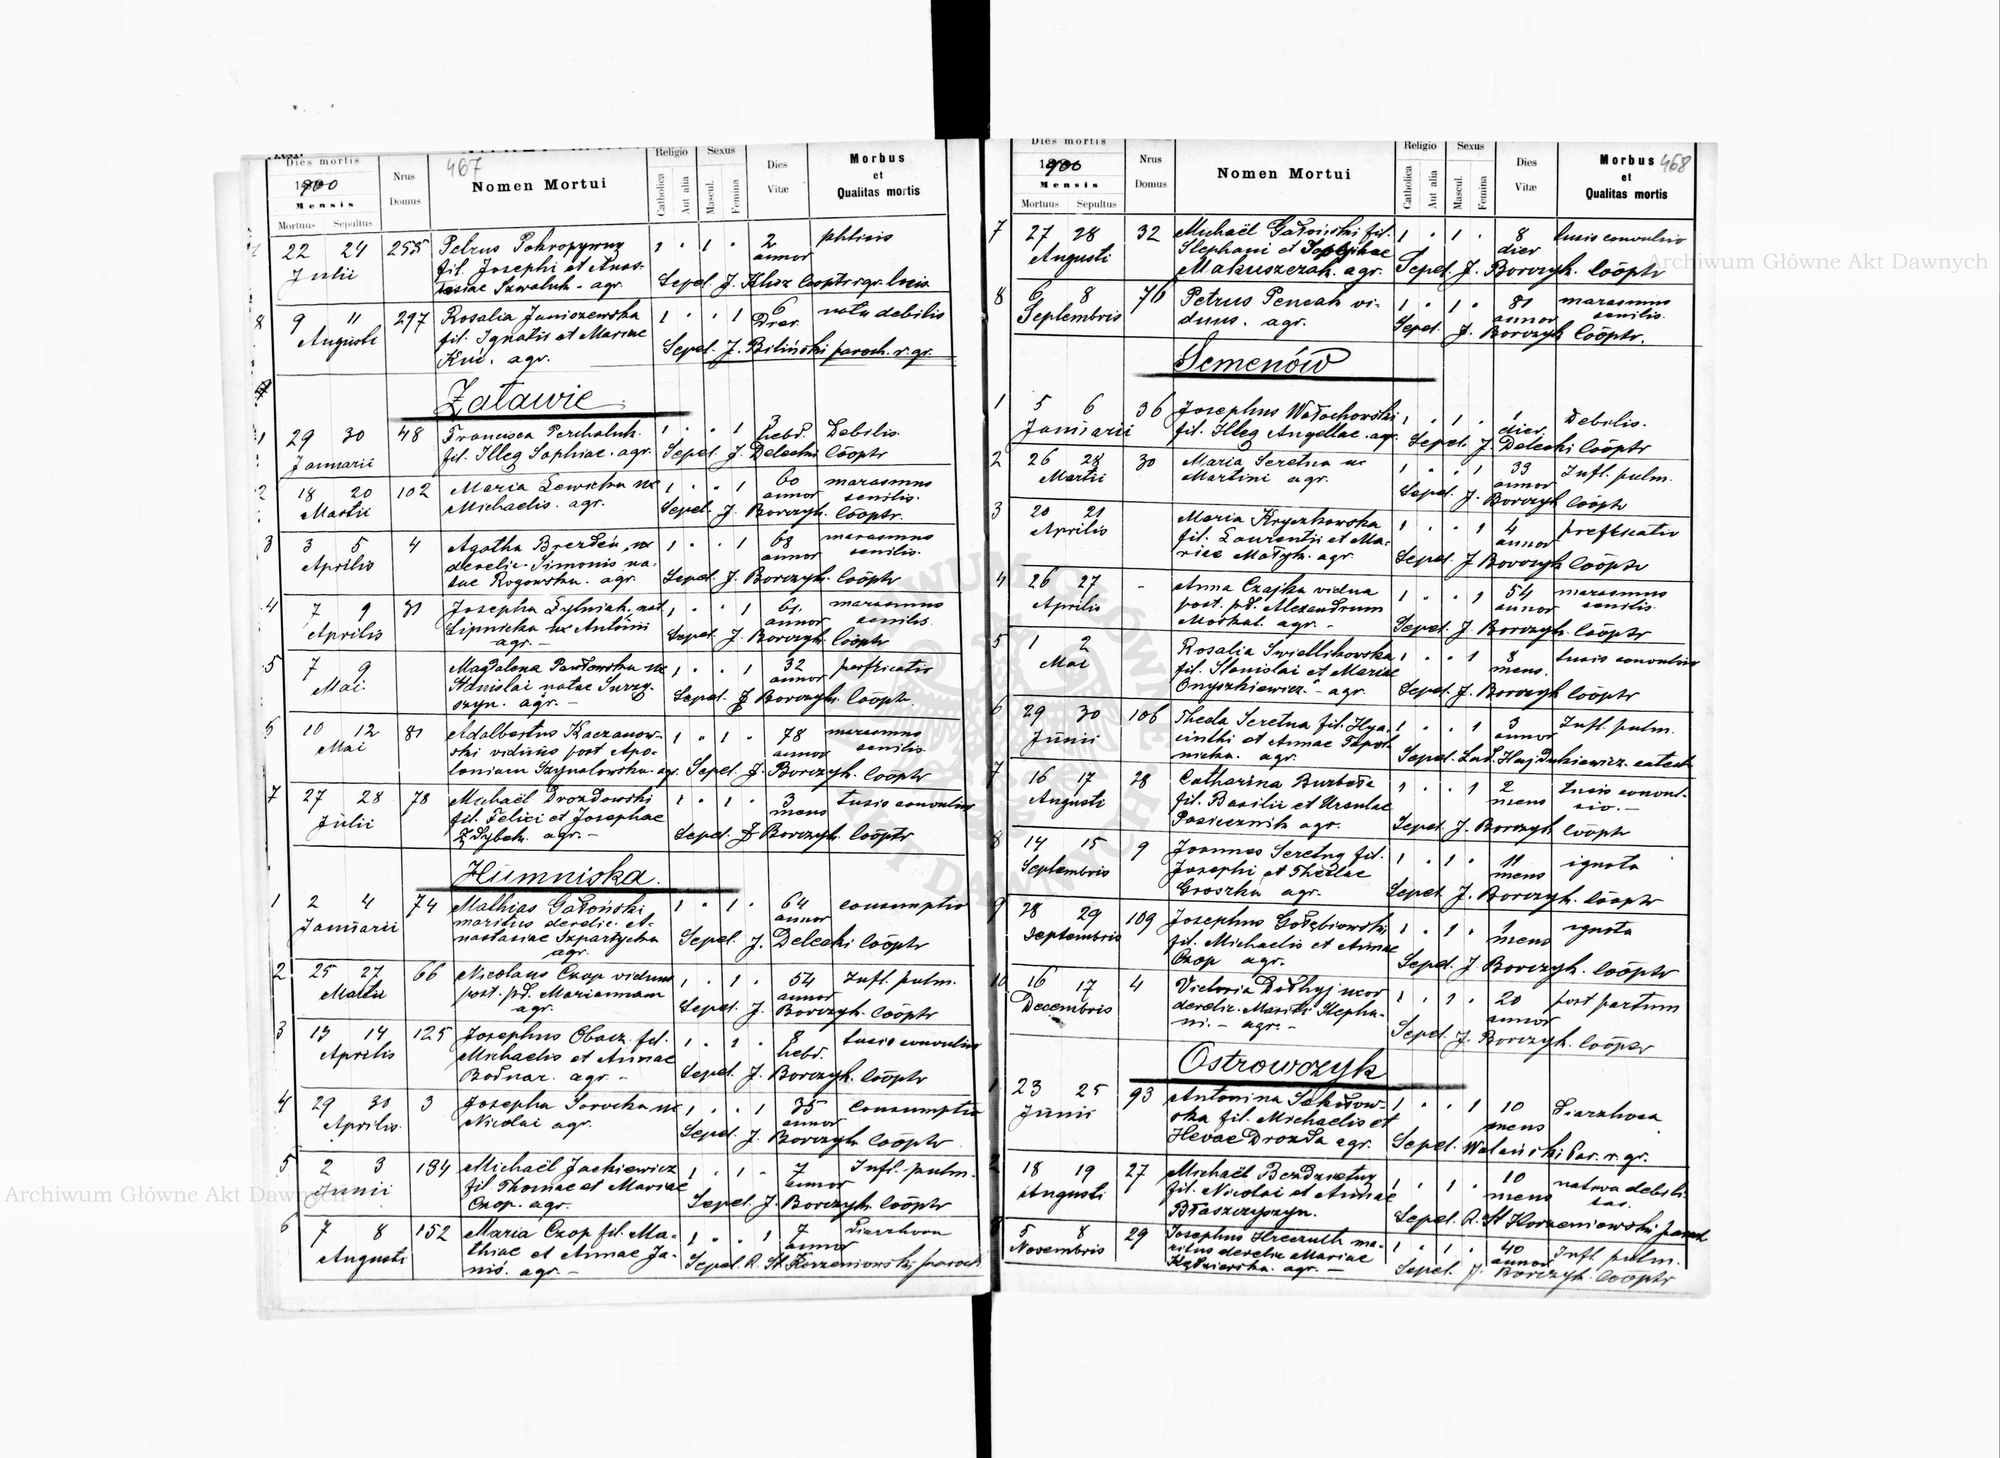 467
Dies mortis
1900
Mensis
Mortuus Sepultus
Nrus
Domus
Nomen Mortui
Religio
Catholica
Aut alia
Sexus
Mascul.
Femina
Dies
Vitæ
Morbus
et
Qualitas mortis
22 24 255 Petrus Pokropywny 1 " 1 " 2 phtisis
Julii fil. Josephi et Anas- annor
tasiae Szwaluk. agr. Sepel. J. Kluz Cooptr r. gr. loci
8 9 11 297 Rosalia Janiszewska 1 " " 1 6 natu debilis
Augusti fil. Ignatii et Mariae Dier.
Kuś. agr. Sepel. J. Biliński paroch. r. gr.
Załawie
1 29 30 48 Francisca Perchaluk 1 " " 1 3 Debilis.
Januarii fil. Illeg Sophiae. agr. hebd.
Sepel. J. Delecki Cooptr
2 18 20 102 Maria Lewicka ux 1 " " 1 60 marasmus
Martii Michaelis. agr. annor senilis.
Sepel. J. Borczyk. Cooptr.
3 3 5 4 Agatha Brezdeń ux 1 " " 1 68 marasmus
Aprilis derelic. Simonis na- annor senilis.
tae Rogowska. agr. Sepel. J. Borczyk. Cooptr
4 7 9 81 Josepha Żylniak nat 1 " " 1 61. marasmus
Aprilis Lipnicka ux Antonii annor senilis.
agr. Sepel. J. Borczyk. Cooptr
5 7 9 Magdalena Pawłowska ux 1 " " 1 32
Mai Stanislai natae annor
agr. Sepel. J. Borczyk. Cooptr.
6 10 12 81 Adalbertus Kaczanow- 1 " 1 " 78 marasmus
Mai ski viduus post Apo- annor senilis.
loniam Szynalowska. agr. Sepel. J. Borczyk. Cooptr
7 27 28 78 Michaël Drozdowski 1 " 1 " 3 tusis convulsiv
Julii fil. Felici et Josephae mens
Zdybek. agr. Sepel. J. Borczyk. Cooptr
Humniska.
1 2 4 74 Mathias Gałoński 1 " 1 " 64 consumptio
Januarii maritus derelic. A- annor
nastasiae Szpartycka
agr. Sepel. J. Delecki Cooptr
2 25 27 66 Nicolaus Czop viduus 1 " 1 " 54 Infl. pulm.
Martii post. pd. Mariannam annor
agr. Sepel. J. Borczyk. Cooptr
3 13 14 125 Josephus Obacz fil. 1 " 1 " 8 tusis convulsiv
Aprilis Michaelis et Annae hebd.
Bodnar. agr. Sepel. J. Borczyk. Cooptr
4 29 30 3 Josepha Sorocka ux 1 " " 1 35 Consumptio
Aprilis Nicolai agr. annor
Sepel. J. Borczyk. Cooptr
5 2 3 134 Michaël Jackiewicz 1 " 1 " 7 Infl. pulm.
Junii fil Thomae et Mariae annor
Czop. agr. Sepel. J. Borczyk. Cooptr
6 7 8 152 Maria Czop fil. Ma- 1 " " 1 7 Diarrhoea
Augusti thiae et Annae Ja- annor
niś. agr. Sepel. R. St Korzeniowski paroch
468
Dies mortis
1900
Mensis
Mortuus Sepultus
Nrus
Domus
Nomen Mortui
Religio
Catholica
Aut alia
Sexus
Mascul.
Femina
Dies
Vitæ
Morbus
et
Qualitas mortis
7 27 28 32 Michaël Gałoński fil. 1 " 1 " 8 tusis convulsiv
Augusti Stephani et Sophiae dier
Makuszczak. agr. Sepel. J. Borczyk. Cooptr
8 6 8 76 Petrus Pencak vi- 1 " 1 " 81 marasmus
Septembris duus. agr. annor senilis.
Sepel. J. Borczyk Cooptr.
Semenów
1 5 6 36 Josephus Wołochowski 1 " 1 " 1 Debilis.
Januarii fil. Illeg Angellae. agr. dier.
Sepel. J. Delecki Cooptr
2 26 28 30 Maria Seretna ux 1 " " 1 33 Infl. pulm.
Martii Martini agr. annor
Sepel. J. Borczyk Cooptr
3 20 21 Maria Kryczkowska 1 " " 1 4
Aprilis fil. Laurentii et Ma- annor
riae Małyk. agr. Sepel. J. Borczyk Cooptr
4 26 27 - Anna Czajka vidua 1 " " 1 54 marasmus
Aprilis post. pd. Alexandrum annor senilis.
Moskal. agr. Sepel. J. Borczyk Cooptr
5 1 2 Rosalia Swietlikowska 1 " " 1 8 tusis convulsiv
Mai fil. Stanislai et Mariae mens.
Onyszkiewicz. agr. Sepel. J. Borczyk Cooptr
6 29 30 106 Thecla Seretna fil. Hya- 1 " " 1 3 Infl. pulm.
Junii cinthi et Annae annor
agr. Sepel. Lad. Hajdukiewicz. catech
7 16 17 28 Catharina Burbeła 1 " " 1 2 Tusis convul-
Augusti fil. Basilii et Ursulae mens sio.
Pasiecznik agr. Sepel. J. Borczyk Cooptr
8 14 15 9 Joannes Seretny fil. 1 " 1 " 11 ignota
Septembris Josephi et Theclae mens
Groszka agr. Sepel. J. Borczyk. Cooptr
9 28 29 109 Josephus Gołębiowski 1 " 1 " 1 ignota
Septembris fil. Michaelis et Annae mens
Czop agr. Sepel. J. Borczyk. Cooptr
10 16 17 4 Victoria Dołhyj uxor 1 " 1 " 20 post partum
Decembris derelic. Mariti Stepha- annor
ni. agr. Sepel. J. Borczyk. Cooptr
Ostrowczyk
1 23 25 93 Antonina Sokołow- 1 " " 1 10 Diarrhoea
Junii ska fil. Michaelis et mens
Hevae Drozda agr. Sepel. Wolański Par. r. gr.
2 18 19 27 Michaël Bezdzietny 1 " 1 " 10 nativa debili-
Augusti fil. Nicolai et Annae mens tas.
Błaszczyszyn. Sepel. R. St Korzeniowski paroch
3 5 8 29 Josephus Hreczuch ma- 1 " 1 " 40 Infl. pulm.
Novembris ritus derelic Mariae annor
Kędzierska. agr. Sepel. J. Borczyk. Cooptr
Archiwum Główne Akt Dawnych
Archiwum Główne Akt Dawnych
ARCHIWUM GŁÓWNE AKT DAWNYCH